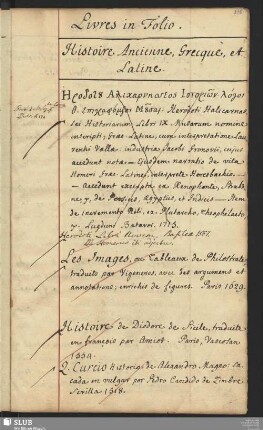 Livres in Folio.
Histoire Ancienne, Grecque, et
Latine.
Ηροδοτȣ Αλικαρνασσηος Ιστοριων λογοι
θ. επιγραφομενοι Μȣσαι. Herodoti Halicarnas
sei Historiarum Libri IX. Musarum nomine
inscripti, Græ. Latine, cum interpretatione Lau
rentii Vallæ industria Jacobi Gronovii, cujus
accedunt notæ — Ejusdem narratio de vita
Homeri Græ. Latine, interprete Heresbachio —
— Accedunt excerpta ex Xenophonte, Strabo
ne, de Persicis, Ægyptiis, et Indicis — Item
de incremento Nili, ex Plutarcho, Theophylacto
Lugduni Batavor. 1715.
Herodoti Libri Novem, Basileæ 1541
Les Images, ou Tableaux de Philostrate
traduits par Vigeneres, avec des argumens et
annotations, enrichis de figures. Paris 1629.
Histoires de Diodore de Sicile, traduite
en françois par Amiot. Paris, Vascosan
1554.
Q. Curcio Historia de Alexandro Magno sa
cada en vulgar por Pedro Candido de Zimbre
Sevilla 1518.
SLUB